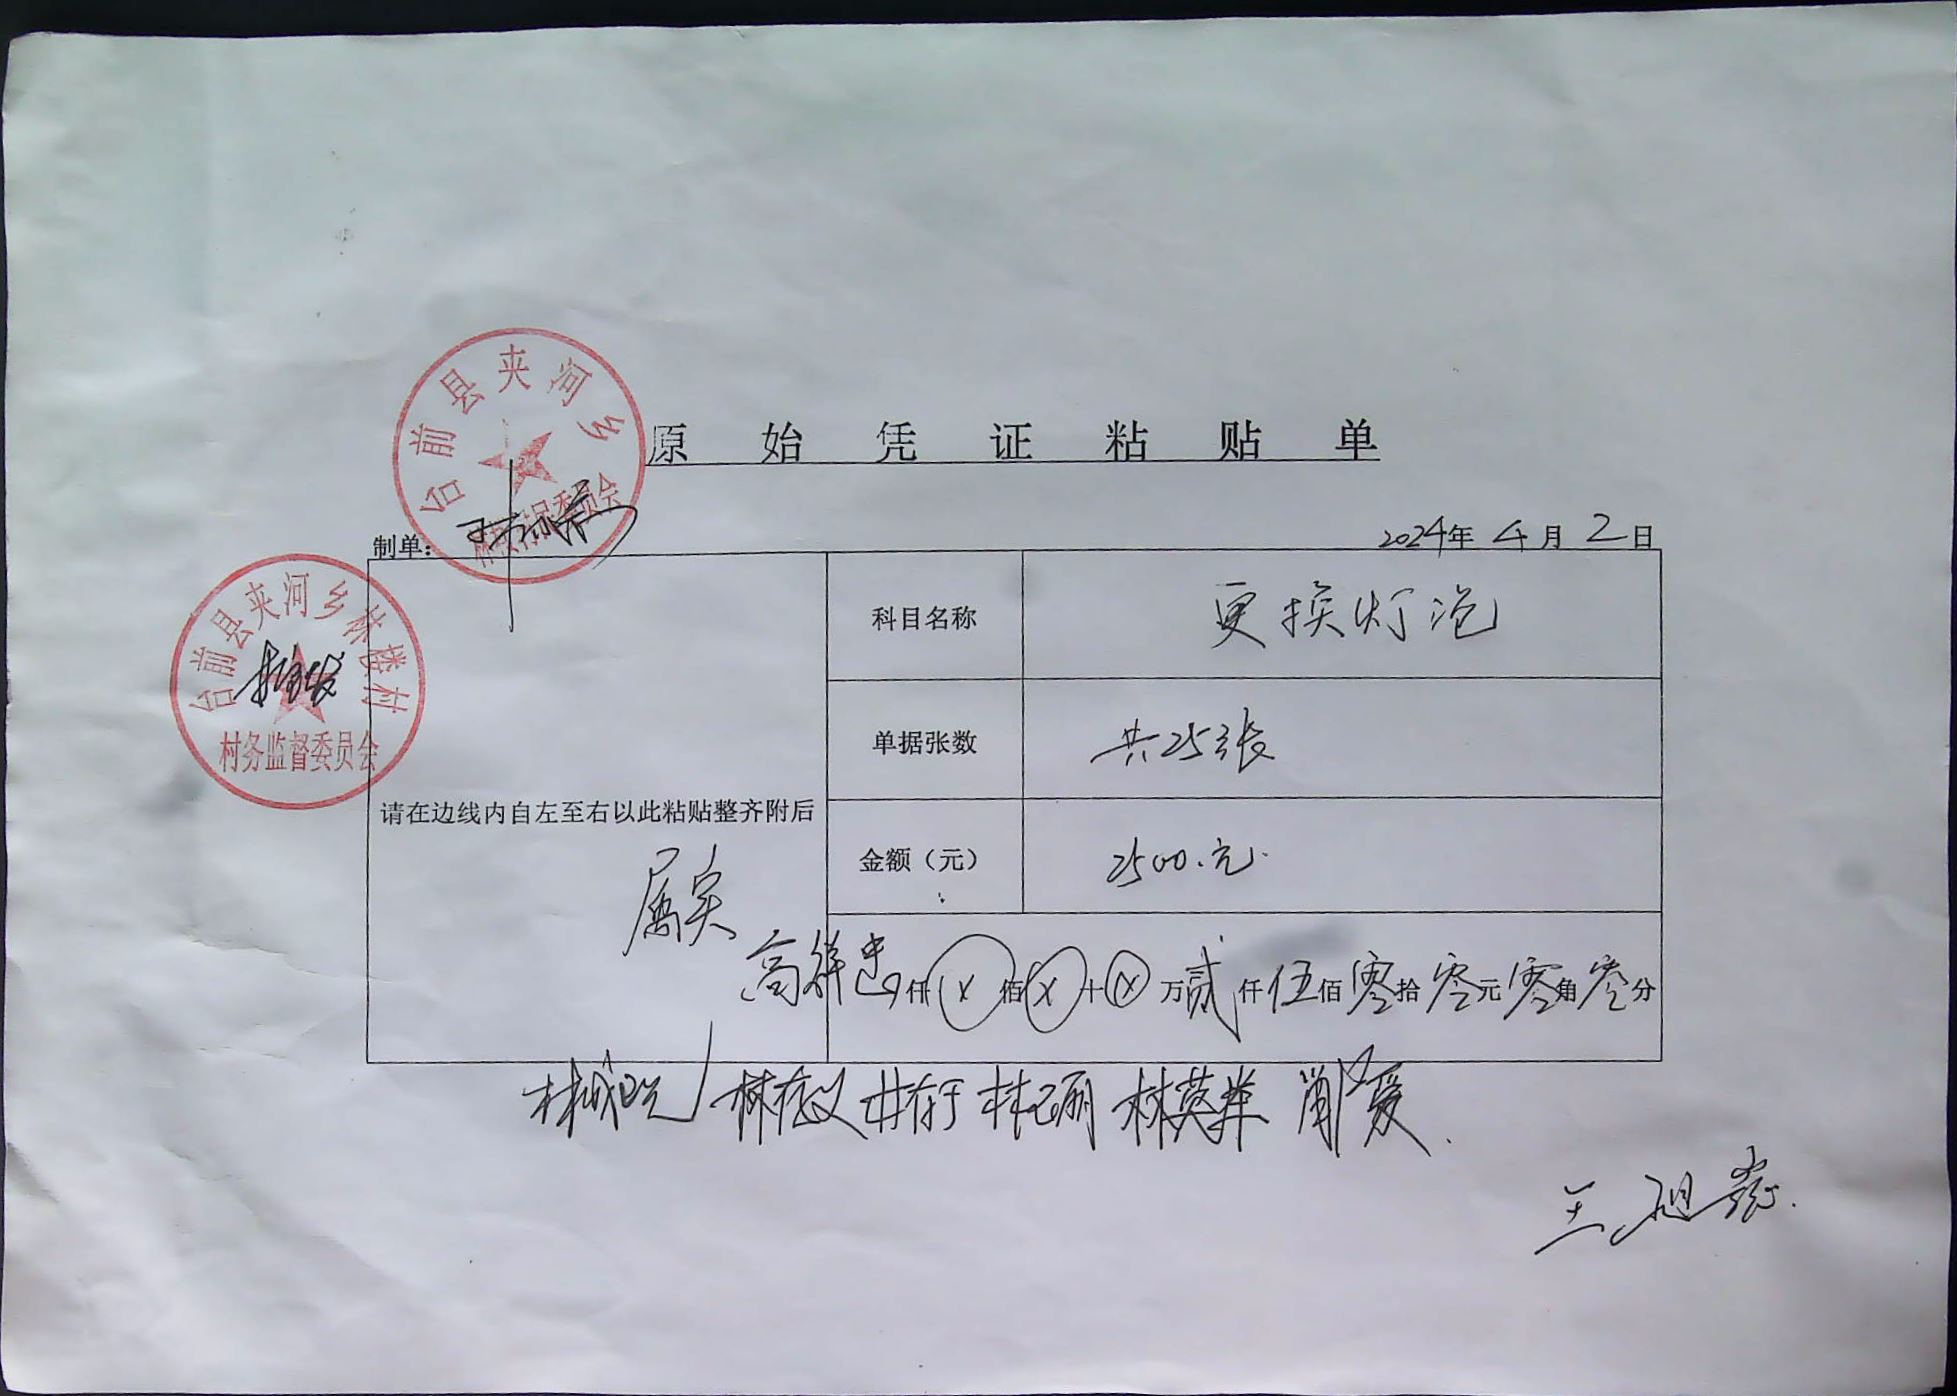 台前县夹河乡
村民委员会
原始凭证粘贴单
制单：
2024年4月2日
台前县夹河乡林楼村
村务监督委员会
科目名称 更换灯泡
单据张数 共25张
请在边线内自左至右以此粘贴整齐附后
金额（元） 2500.元.
属实
高祥忠
仟ⓧ佰ⓧ十ⓧ万贰仟伍佰零拾零元零角零分
林存义 林英举